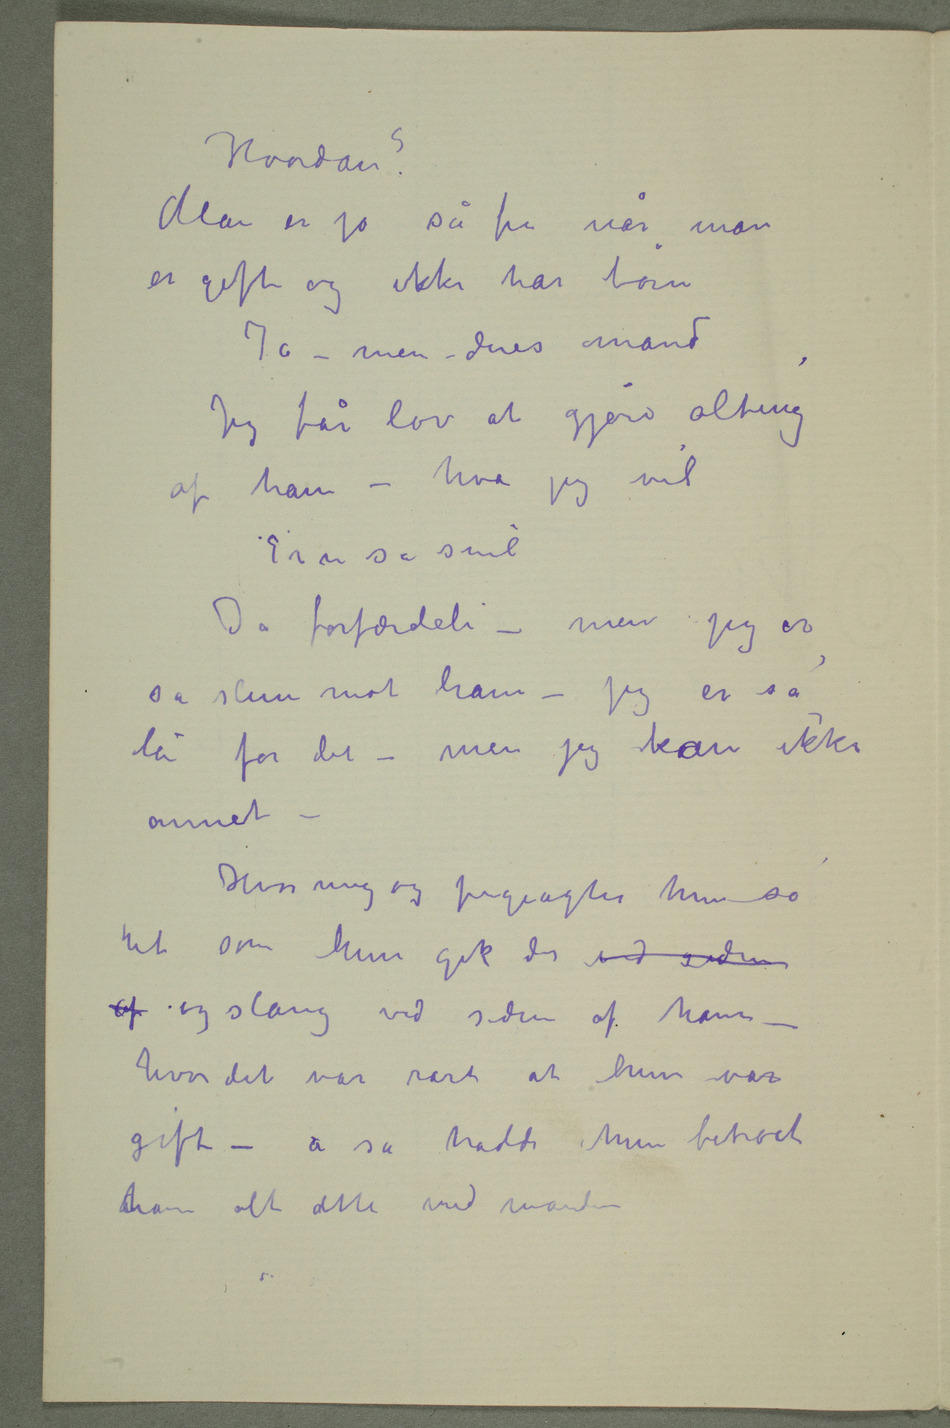 Hvordan?
Man er jo så fri når man
er gift og ikke har børn
Ja – men – deres mand
Jeg får lov at gjøre alting
af ham – hva jeg vil
Er n så snil
Ja forfærdeli – men jeg er
så slem mot ham – jeg er så
lei for det – men jeg kan ikke
annet –
Hvor ung og pigeagtig hun så
ut som hun gik der ved siden
af og slang ved siden af ham –
hvor det var rart at hun var
gift – å så hadde hun betrodt
ham alt dette med manden